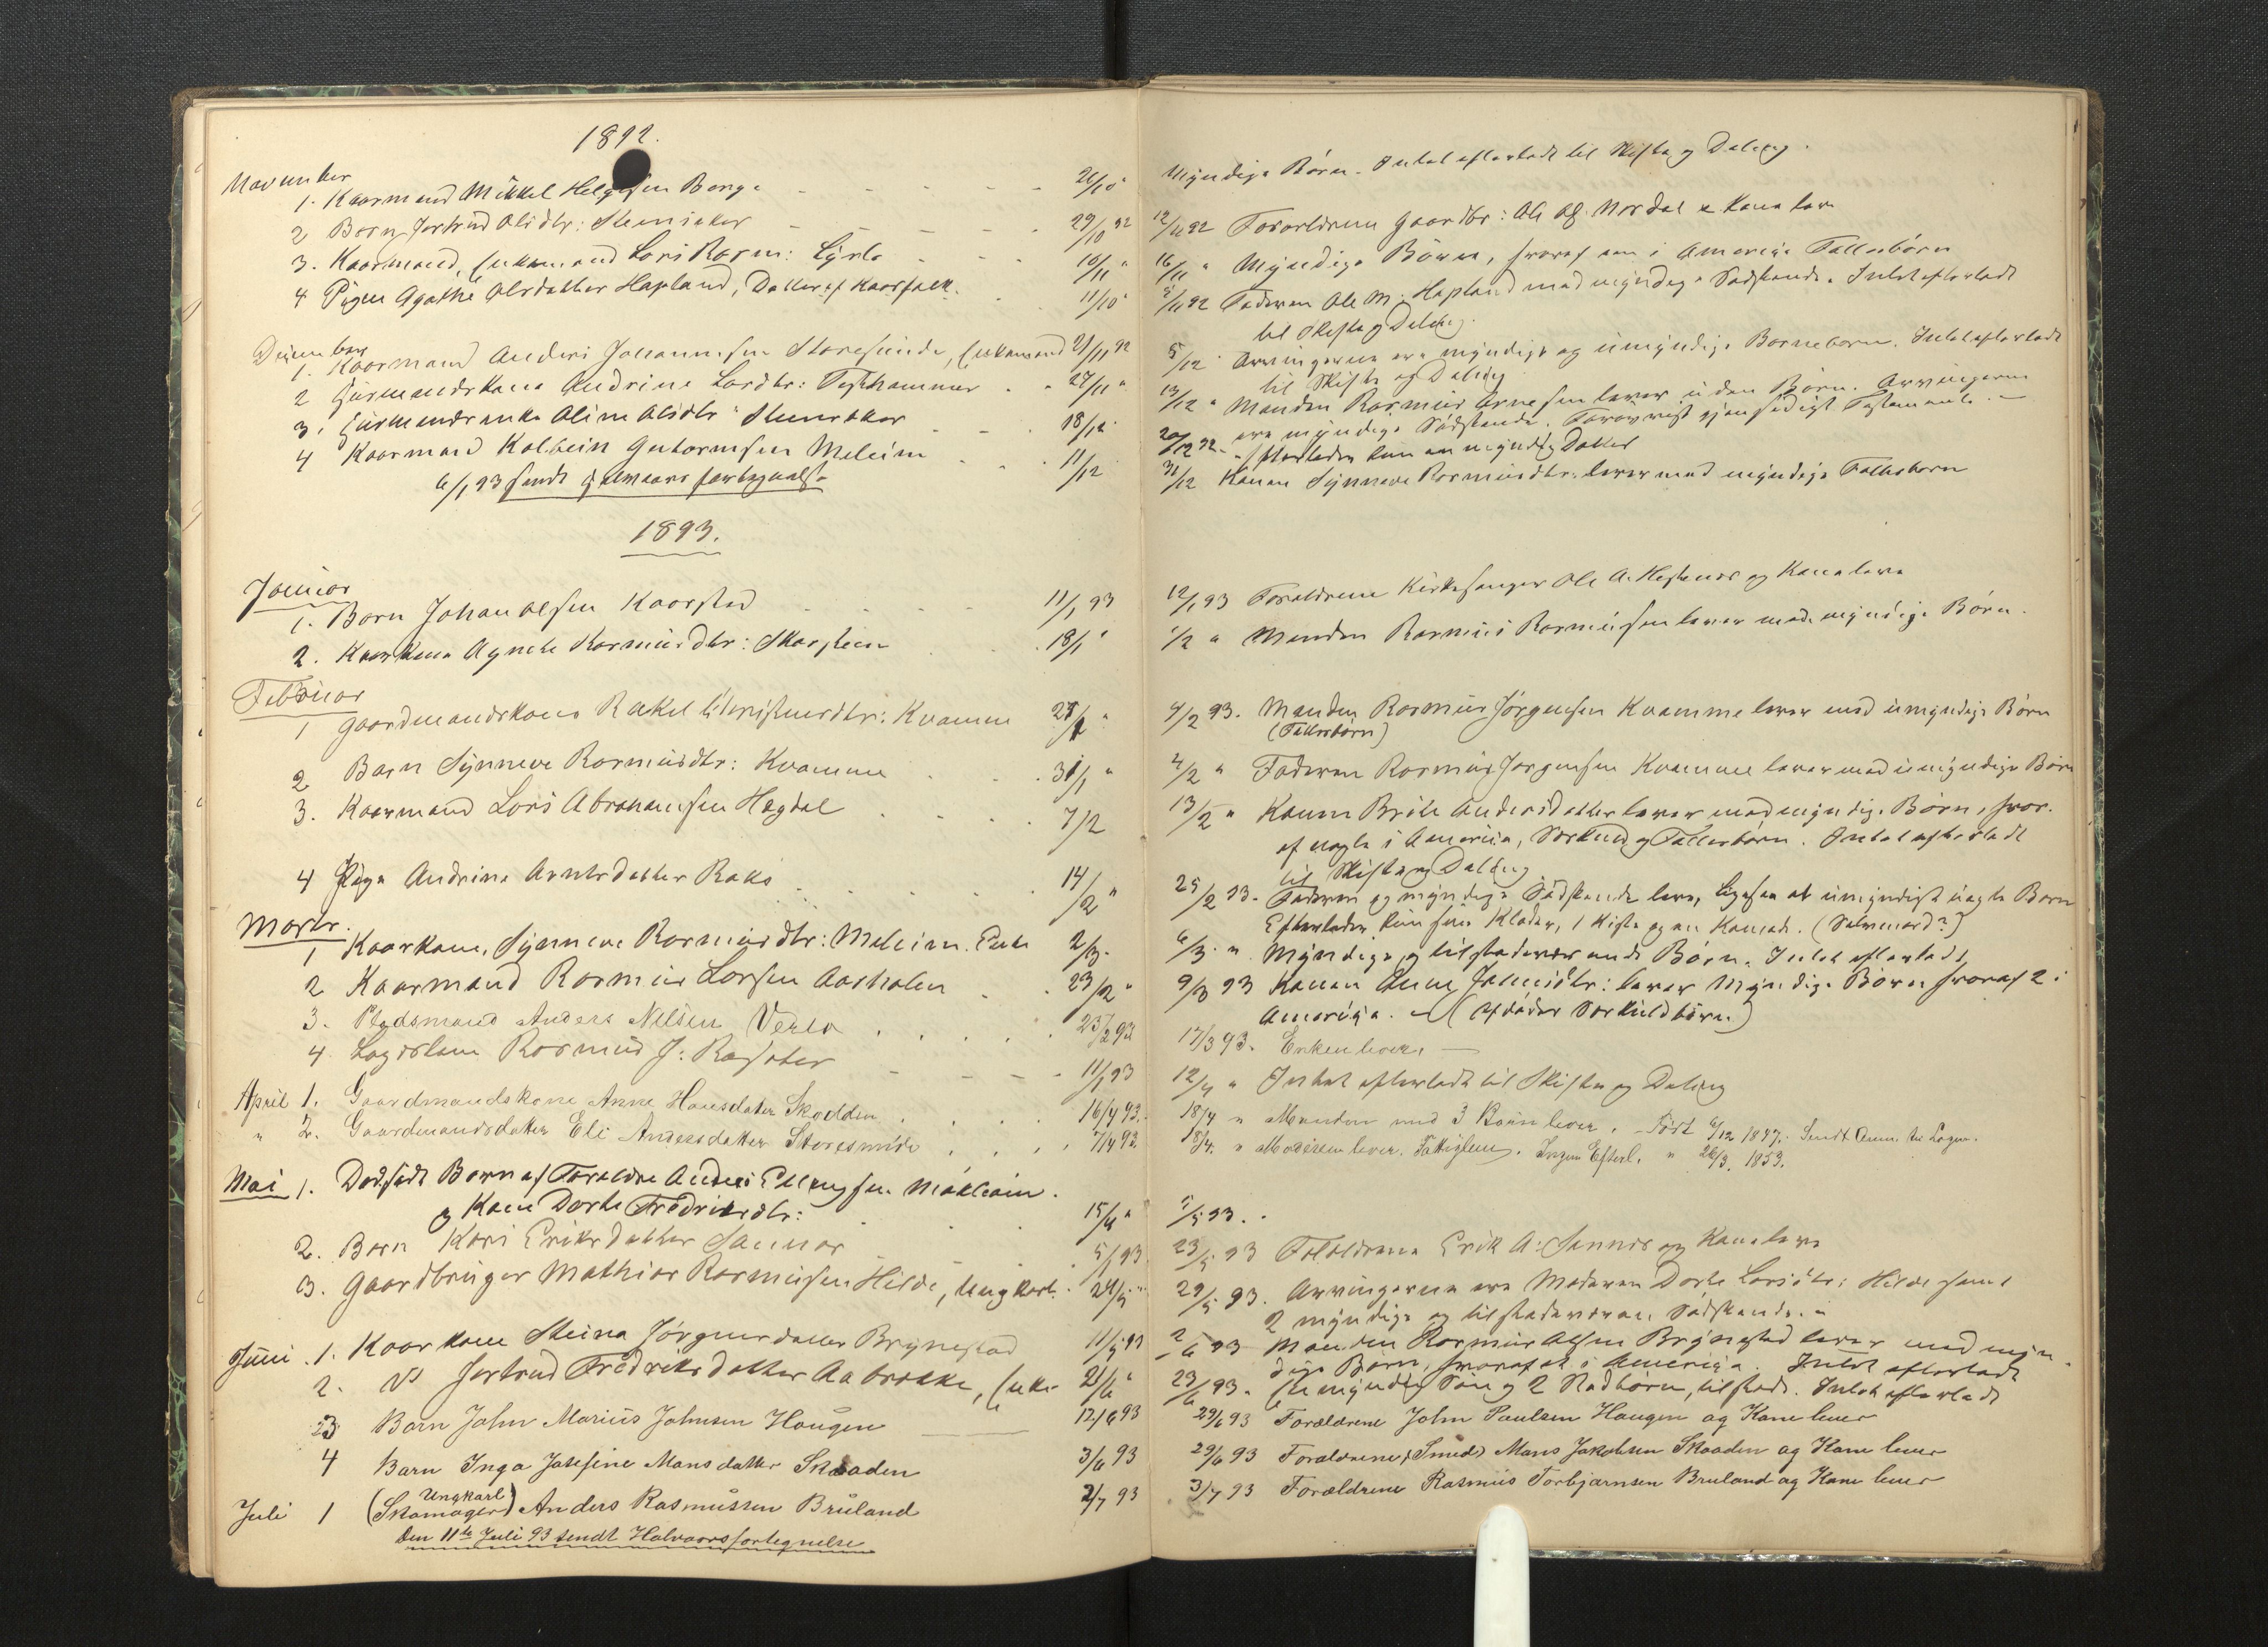 1892.
November
1. Kaarmand Mikkel Helgesen Berge 26/10
2 Barn Jertrud Olsdtr: Steinsaker 29/10 92
3. Kaarmand, Enkemand Lars Rasm: 10/11 "
4 Pigen Agathe Olsdatter Hapland, Datter af Kaarfolk. 11/10
December
1. Kaarmand Anders Johannesen Storesunde, Enkemand 21/11 92
2 Husmandskone Andrine Larsdtr: 27/11 "
3. Husmandsenke Oline Olsdtr 18/12
4 Kaarmand Kolbein Guttormsen Meleim 11/12
6/1 93 sendt Halvaars fortegnelse
1893.
Januar
1. Barn Johan Olsen Kaarstad 11/1 93
2. Kaarkone Agnete Rasmusdtr: Skarstein 18/1 "
Februar
1 Gaardmandskone Rakel Christensdtr: Kvamme "
2 Barn Synneve Rasmusdtr: Kvamme 31/1 "
3. Kaarmand Lars Abrahamsen Hegdal 7/2
4 Pige Andrine Arntsdatter Raks 14/2 "
Marts.
1 Kaarkone, Synneve Rasmusdtr: Meleim. Enke 2/3.
2 Kaarmand Rasmus Larsen Aarholen 23/2 "
3. Pladsmand Anders Nilsen Verlo 23/2 93
4. Lægdslem Rasmus J: 11/1 93
April 1. Gaardmandskone Anne Hansdatter Skodden 16/4 93.
" 2. Gaardmandsdatter Eli Andersdatter Storesunde 7/4 93
Mai 1. Dødfødt Barn af Forældre Anders Ellingsen
og Kone Dorte Fredriksdtr: 15/4 "
2. Barn Kari Eriksdatter Sannes 5/5 93
3. Gaardbruger Mathias Rasmusen Hilde, Ungkarl. 24/5 "
Juni 1. Kaarkone Steina Jørgensdatter Brynestad 11/5 93
2. Do Jertrud Fredriksdatter Aabrekke, Enke 21/6 "
3 Barn John Marius Johnsen Haugen 12/6 93
4 Barn Inga Josefine Mons datter Skaaden 3/6 93
Ungkarl
Juli 1 (Skomager) Anders Rasmussen Bruland 2/7 93
Den 11te Juli 93 sendt Halvaarsfortegnelse
Myndige Børn. Intet efterladt til Skifte og Deling.
12/11 92 Forældrene Gaardbr: Ole Nordal & Kone lever
16/11 " Myndige Børn, hvoraf en i Amerika Fællesbørn
92 Faderen Ole M: Hapland med myndige Sødskende. Intet efterladt
til Skifte og Deling.
5/12 Arvingerne ere myndige og umyndige Børnebørn. Intet efterladt
til Skifte og Deling
13/12 " Manden Rasmus Arnesen lever uden Børn. Arvingerne
ere myndige Sødskende. Forøvrigt gjensidigt Testamente. —
20/12 92. Efterlader kun en myndig Datter
31/12 Konen Synneve Rasmusdtr: lever med myndige Fællesbørn
12/1 93 Forældrene Kirkesanger Ole A. og Kone lever
1/2 " Manden Rasmus Rasmussen lever med myndige Børn.
4/2 93. Manden Rasmus Jørgensen Kvamme lever med umyndige Børn
(Fællesbørn)
4/2 " Faderen Rasmus Jørgensen Kvamme lever med umyndige Børn
13/2 " Konen Brite Andersdatter lever med myndige Børn, hvor-
af nogle i Amerika, Særkuld og Fællesbørn. Intet efterladt
til Skifte og Deling
25/2 93. Faderen og myndige Sødskende lever, ligesaa et umyndigt uægte Barn
Efterlader kun sine Klæder, 1 Kiste og en Komode. (Selvmord?)
6/3. " Myndige og tilstedeværende Børn. Intet efterladt
9/3 93 Konen Anne lever Myndige Børn hvoraf 2 i
Amerika. — (Afdødes Særkuldbørn.)
17/3 93. Enken lever. —
12/4 " Intet efterladt til Skifte og Deling
18/4 " Manden med 3 Børn lever. Født 6/12 1847. Sendt Anm. til Lagm.
18/4. " Moderen lever. Fattiglem. Ingen Efterl. " 26/3. 1853.
1/5 93.
23/5 93 Forældrene Erik A: Sannes og Kone lever
29/5 93. Arvingerne ere Moderen Dorte Larsdtr: Hilde samt
2 myndige og tilstedeværende Sødskende.
2/6 93 Manden Rasmus Olsen Brynestad lever med myn-
dige Børn, hvoraf et i Amerika. Intet efterladt
23/6 93. En myndig Søn og 2 Stedbørn, tilstede. Intet efterladt
29/6 93 Forældrene John Paulsen Haugen og Kone lever
29/6 93 Forældrene (Smed) Mons Jakobsen Skaaden og Kone lever
3/7 93 Forældrene Rasmus Torbjørnsen Bruland og Kone lever